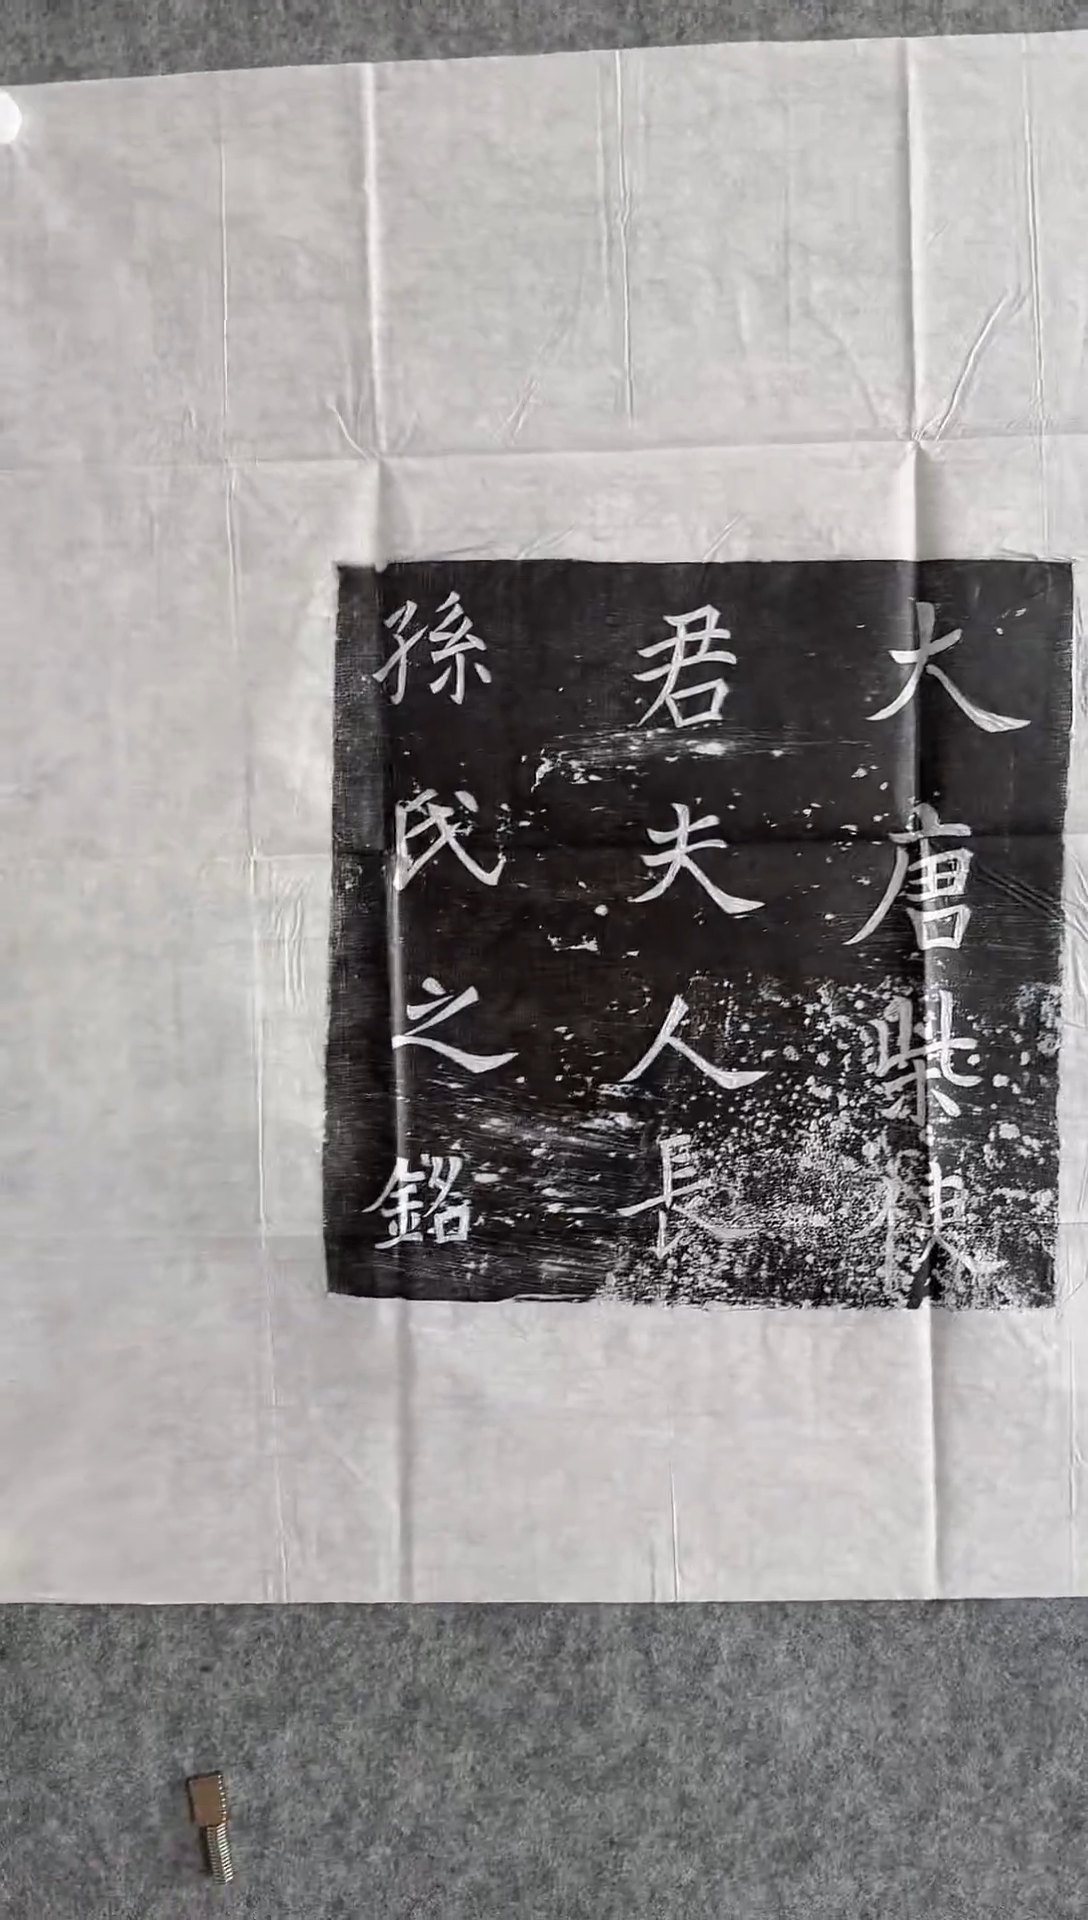 大唐柴使
君夫人長
孫氏之銘